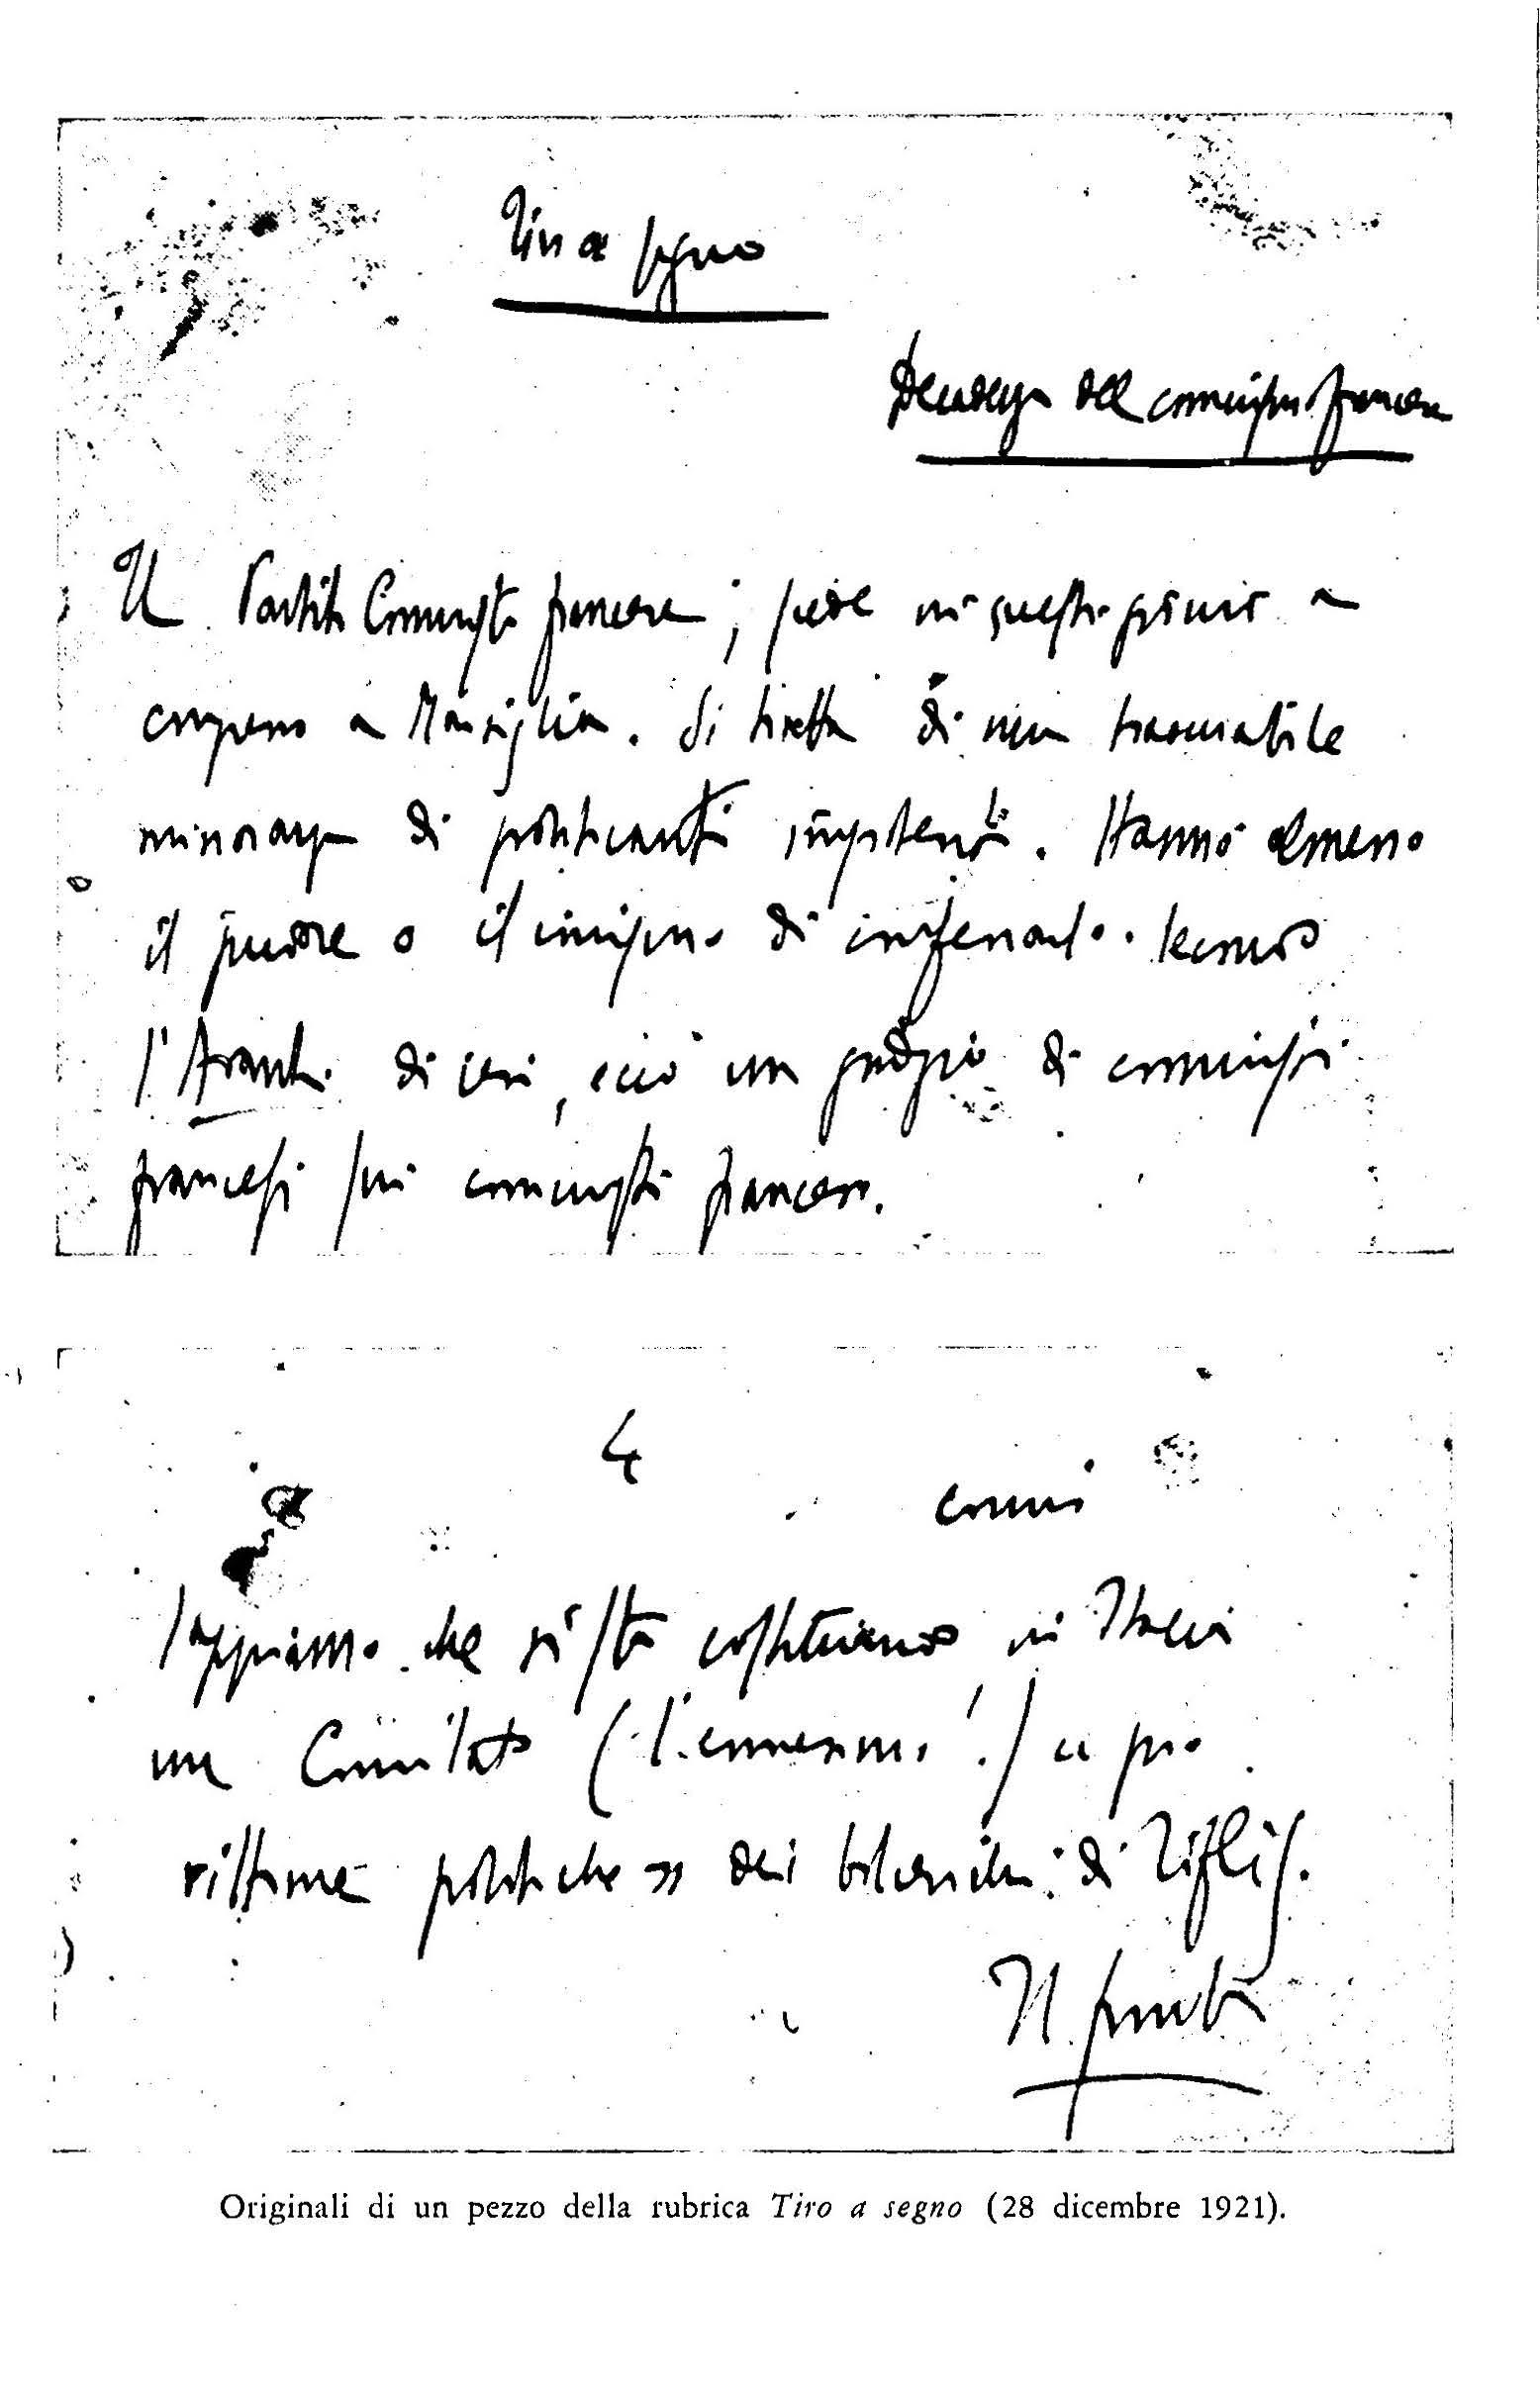 Tiro a segno
Decadenza del comunismo francese
Il Partito Comunista francese, siede in questi giorni a
congresso a Marsiglia. Si tratta di una trascurabile
minoranza di politicanti impotenti. Hanno almeno
il pudore o il cinismo di confessarlo. Secondo
l'Avanti di ieri, ecco un giudizio di comunisti
francesi sui comunisti francesi.
4
Sappiamo che si sta costituendo in Italia
un Comitato (l'ennesimo!) a pro
vittime politiche » dei bolscevichi di Tiflis.
Originali di un pezzo della rubrica Tiro a segno (28 dicembre 1921).